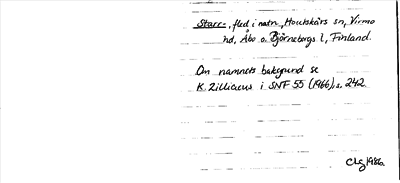 Starr-, fled i natn., Houtskärs sn, Virmo
hd, Åbo o. Björneborgs l, Finland.
Om namnets bakgrund se
K. Zilliacus i SNF 55 (1966), s. 242.
1986.